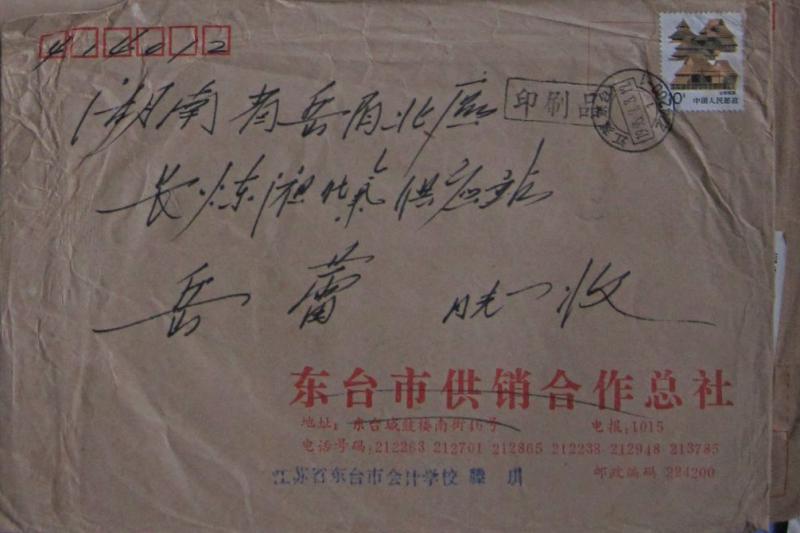 414012
湖南省岳阳北区
长炼液化气供应站
岳蕾 收
印刷品
中国人民邮政
东台市供销合作总社
地址：东台城鼓楼南街46号 电报：1015
电话号码：212263 212701 212865 212238 212948 213785
邮政编码 224200
江苏省东台市会计学校 滕 琪